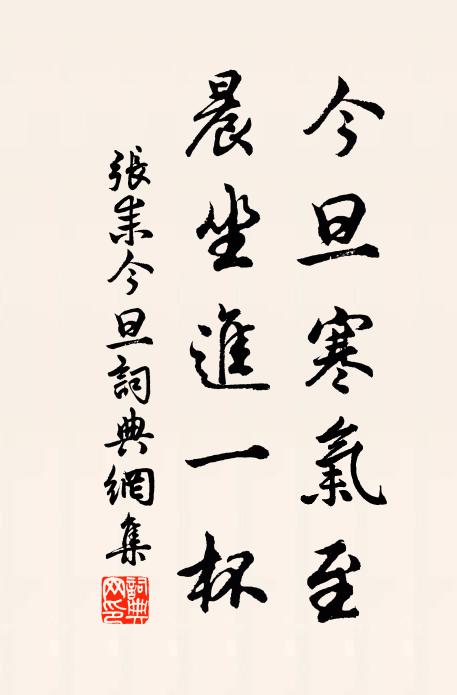 今旦寒氣至
晨坐進一杯
張耒今旦詞典網集
詞典網印